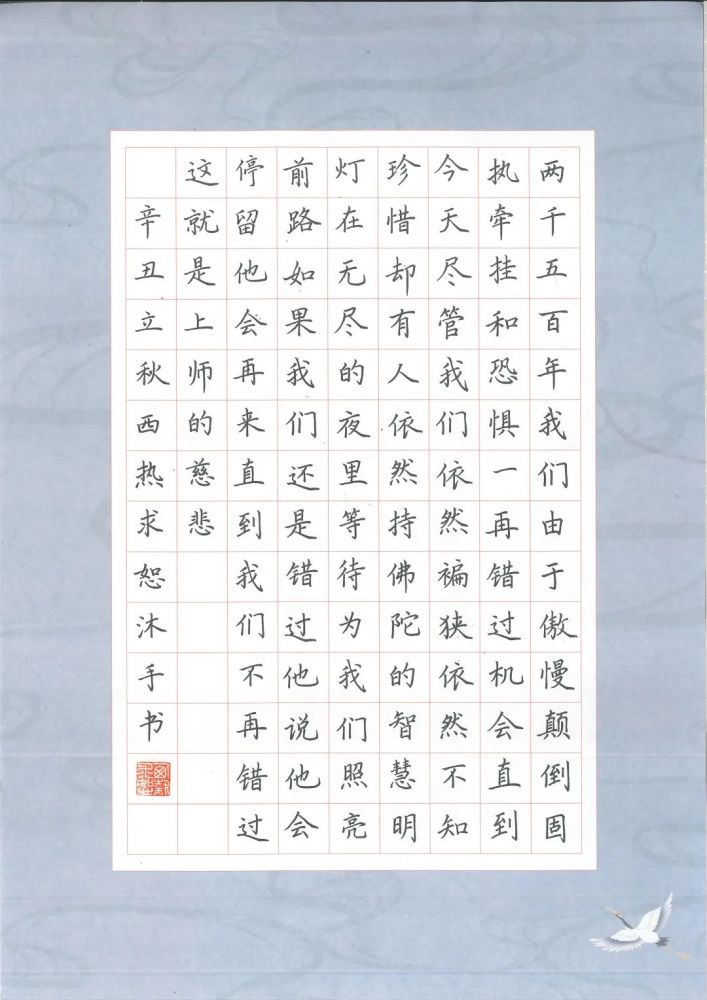 两千五百年我们由于傲慢颠倒固
执牵挂和恐惧一再错过机会直到
今天尽管我们依然褊狭依然不知
珍惜却有人依然持佛陀的智慧明
灯在无尽的夜里等待为我们照亮
前路如果我们还是错过他说他会
停留他会再来直到我们不再错过
这就是上师的慈悲
辛丑立秋西热求恕沐手书